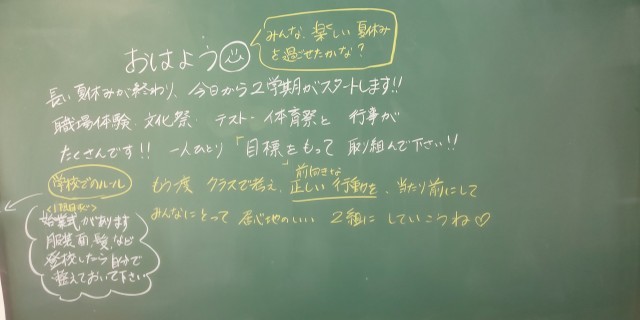 おはよう
みんな、楽しい夏休み
を過ごせたかな？
長い夏休みが終わり、今日から2学期がスタートします!!
職場体験、文化祭、テスト・体育祭と 行事が
たくさんです!! 一人ひとり「目標をもって」取り組んで下さい!!
学校でのルール
もう1度 クラスで考え、前向きな正しい行動を、当たり前にして
みんなにとって 居心地のいい 2組に していこうね♡
始業式があります
服装面、髪、など
登校したら自分で
整えておいて下さい